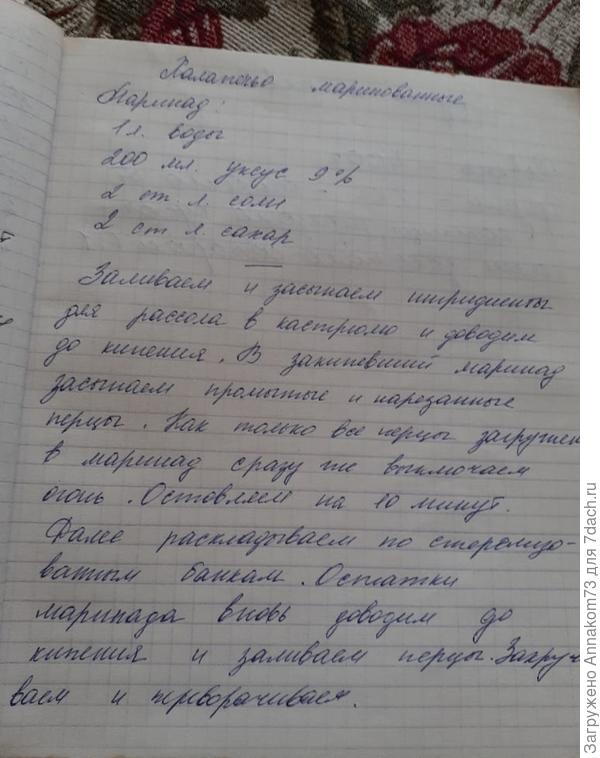 Халапеньо маринованные
Маринад:
1 л. воды
200 мл. уксус 9 %
2 ст. л. соли
2 ст л сахар
Заливаем и засыпаем ингридиенты
для рассола в кастрюлю и доводим
до кипения. В закипевший маринад
засыпаем промытые и нарезанные
перцы. Как только все перцы загружен
в маринад сразу же выключаем
огонь. Оставляем на 10 минут.
Далее раскладываем по стерелизо-
ватным банкам. Остатки
маринада вновь доводим до
кипения и заливаем перцы. Закручи
ваем и переворачиваем.
Загружено Annakom73 для 7dach.ru